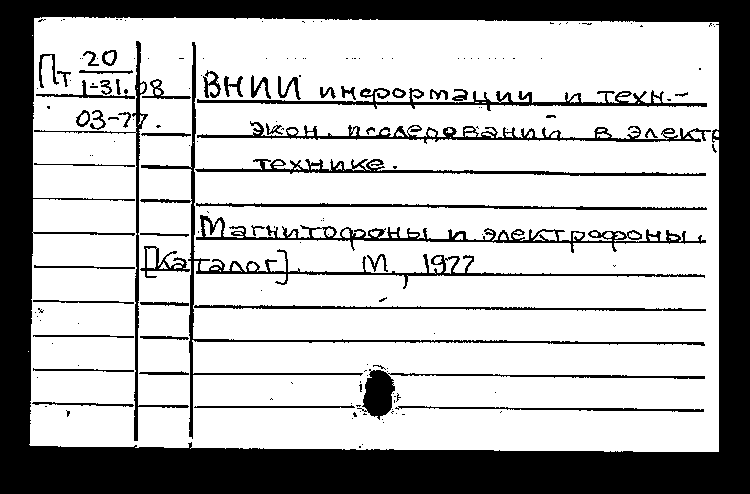 Пт 20
1-31.08
03-77.
ВНИИ информации и техн.-
экон. исследований в электр
технике.
Магнитофоны и электрофоны.
[Каталог]. М., 1977